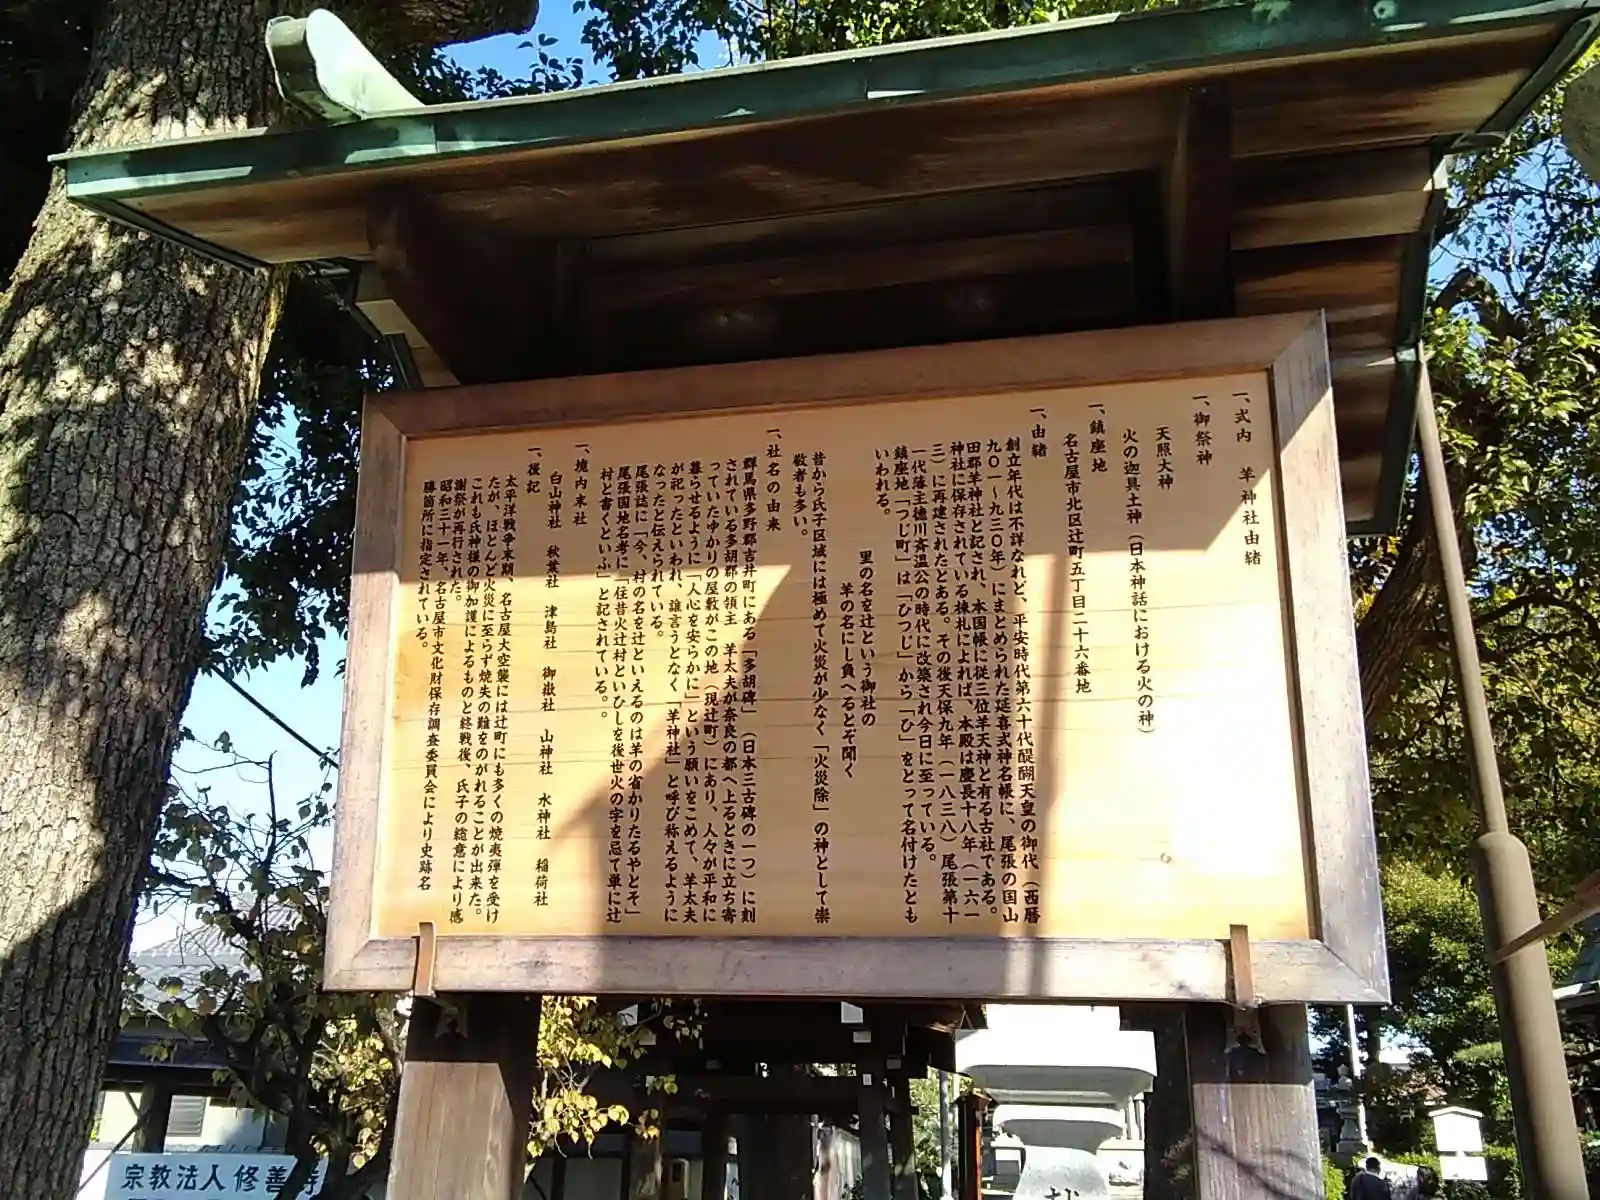 一、式内 羊神社由緒
一、御祭神
天照大神
火の迦具土神（日本神話における火の神）
一、鎮座地
名古屋市北区辻町五丁目二十六番地
一、由緒
創立年代は不詳なれど、平安時代第六十代醍醐天皇の御代（西暦
九〇一～九三〇年）にまとめられた延喜式神名帳に、尾張の国山
田郡羊神社と記され、本国帳に従三位羊天神と有る古社である。
神社に保存されている棟札によれば、本殿は慶長十八年（一六一
三）に再建されたとある。その後天保九年（一八三八）尾張第十
一代藩主徳川斉温公の時代に改築され今日に至っている。
鎮座地「つじ町」は「ひつじ」から「ひ」をとって名付けたとも
いわれる。
里の名を辻という御社の
羊の名にし負へるとぞ聞く
昔から氏子区域には極めて火災が少なく「火災除」の神として崇
敬者も多い。
一、社名の由来
群馬県多野郡吉井町にある「多胡碑」（日本三古碑の一つ）に刻
されている多胡郡の領主 羊太夫が奈良の都へ上るときに立ち寄
っていたゆかりの屋敷がこの地（現辻町）にあり、人々が平和に
暮らせるように「人心を安らかに」という願いをこめて、羊太夫
が祀ったといわれ、誰言うとなく「羊神社」と呼び称えるように
なったと伝えられている。
尾張誌に「今、村の名を辻といえるのは羊の省かりたるやとぞ」
尾張国地名考に「往昔火辻村といひしを後世火の字を忌て単に辻
村と書くといふ」と記されている。。
一、境内末社
白山神社 秋葉社 津島社 御嶽社 山神社 水神社 稲荷社
一、後記
太平洋戦争末期、名古屋大空襲には辻町にも多くの焼夷弾を受け
たが、ほとんど火災に至らず焼失の難をのがれることが出来た。
これも氏神様の御加護によるものと終戦後、氏子の総意により感
謝祭が再行された。
昭和三十一年、名古屋市文化財保存調査委員会により史跡名
勝箇所に指定されている。
宗教法人修善寺